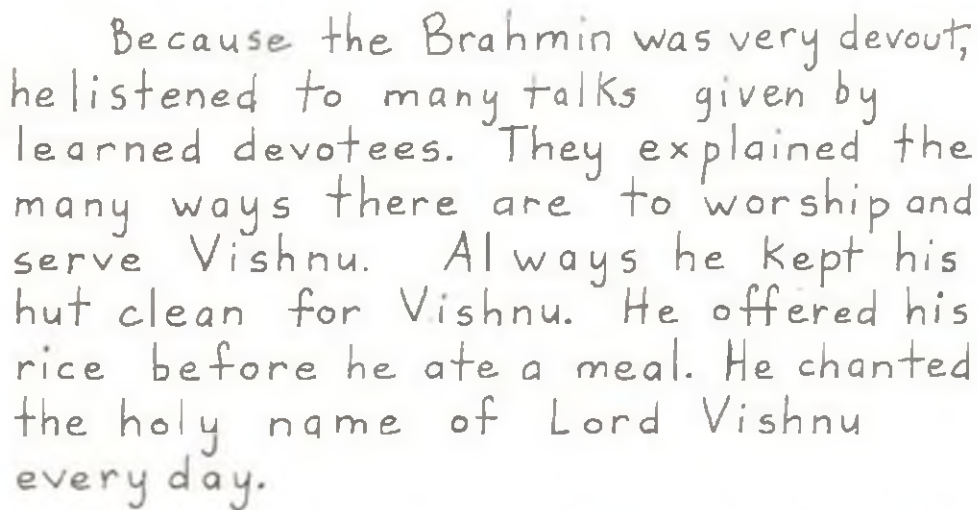 Because the Brahmin was very devout,
he listened to many talks given by
learned devotees. They explained the
many ways there are to worship and
serve Vishnu. Always he kept his
hut clean for Vishnu. He offered his
rice before he ate a meal. He chanted
the holy name of Lord Vishnu
every day.